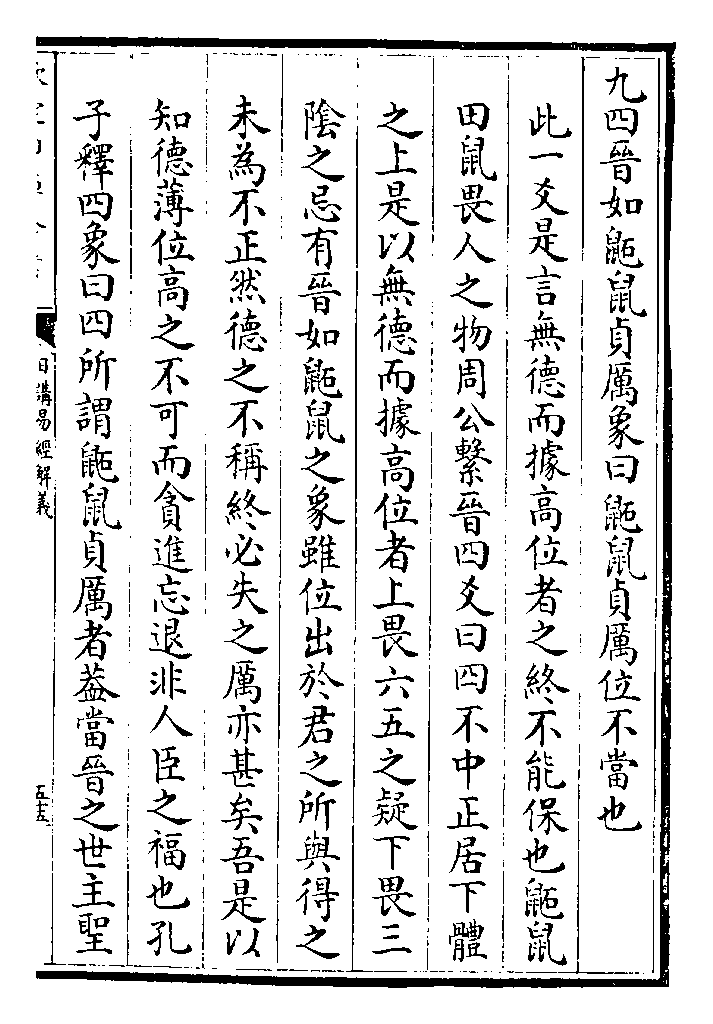 九四晉如鼫鼠貞厲象曰鼫鼠貞厲位不當也
此一爻是言無德而據高位者之終不能保也鼫鼠
田鼠畏人之物周公繫晉四爻曰四不中正居下體
之上是以無德而據高位者上畏六五之疑下畏三
陰之忌有晉如鼫鼠之象雖位出於君之所與得之
未為不正然德之不稱終必失之厲亦甚矣吾是以
知德薄位高之不可而貪進忘退非人臣之福也孔
子釋四象曰四所謂鼫鼠貞厲者葢當晉之世主聖
日講易經解義